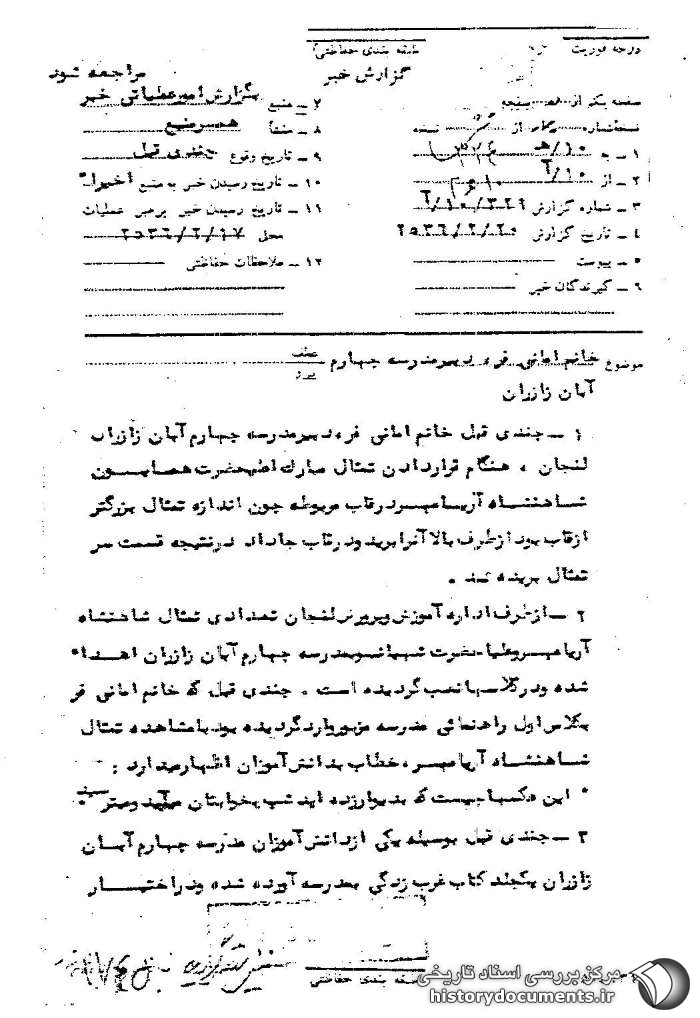 درجه فوریت
طبقه بندی حفاظتی
گزارش خبر
مراجعه شود
صفحه یکم از صفحه
نسخه شماره از نسخه
۱ ـ به ۱۰/هـ
۲ ـ از ۱۰/آ
۳ ـ شماره گزارش ۱۰/۳۲۹/آ
۴ ـ تاریخ گزارش ۲۵۳۶/۲/۲۰
۵ ـ پیوست
۶ ـ گیرندگان خبر
۷ ـ منبع بگزارش امیر عملیاتی خبر
۸ ـ منشأ همسر منبع
۹ ـ تاریخ وقوع چندی قبل
۱۰ ـ تاریخ رسیدن خبر به منبع اخیرا"
۱۱ ـ تاریخ رسیدن خبر برهبر عملیات
محل ۲۵۳۶/۲/۱۷
۱۲ ـ ملاحظات حفاظتی
موضوع خانم امانی فر دبیر مدرسه چهارم عطف
آبان زازران پیرو
۱ ـ چندی قبل خانم امانی فر دبیر مدرسه چهارم آبان زازران
لنجان ، هنگام قراردادن تمثال مبارک اعلیحضرت همایون
شاهنشاه آریامهر در قاب مربوطه چون اندازه تمثال بزرگتر
از قاب بود از طرف بالا آنرا برید و در قاب جا داد در نتیجه قسمت سر
تمثال بریده شد .
۲ ـ از طرف اداره آموزش و پرورش لنجان تعدادی تمثال شاهنشاه
آریامهر و علیاحضرت شهبانو بمدرسه چهارم آبان زازران اهداء
شده و در کلاسها نصب گردیده است . چندی قبل که خانم امانی فر
بکلاس اول راهنمائی مدرسه مزبور وارد گردیده بود با مشاهده تمثال
شاهنشاه آریامهر ، خطاب بدانش آموزان اظهار میدارد :
" این عکسها چیست که بدیوار زده اید شب بخوابتان میآید و میترسید "
۳ ـ چندی قبل بوسیله یکی از دانش آموزان مدرسه چهارم آبان
زازران یکجلد کتاب غرب زدگی بمدرسه آورده شده و در اختیار
طبقه بندی حفاظتی
مرکز بررسی اسناد تاریخی
historydocuments.ir